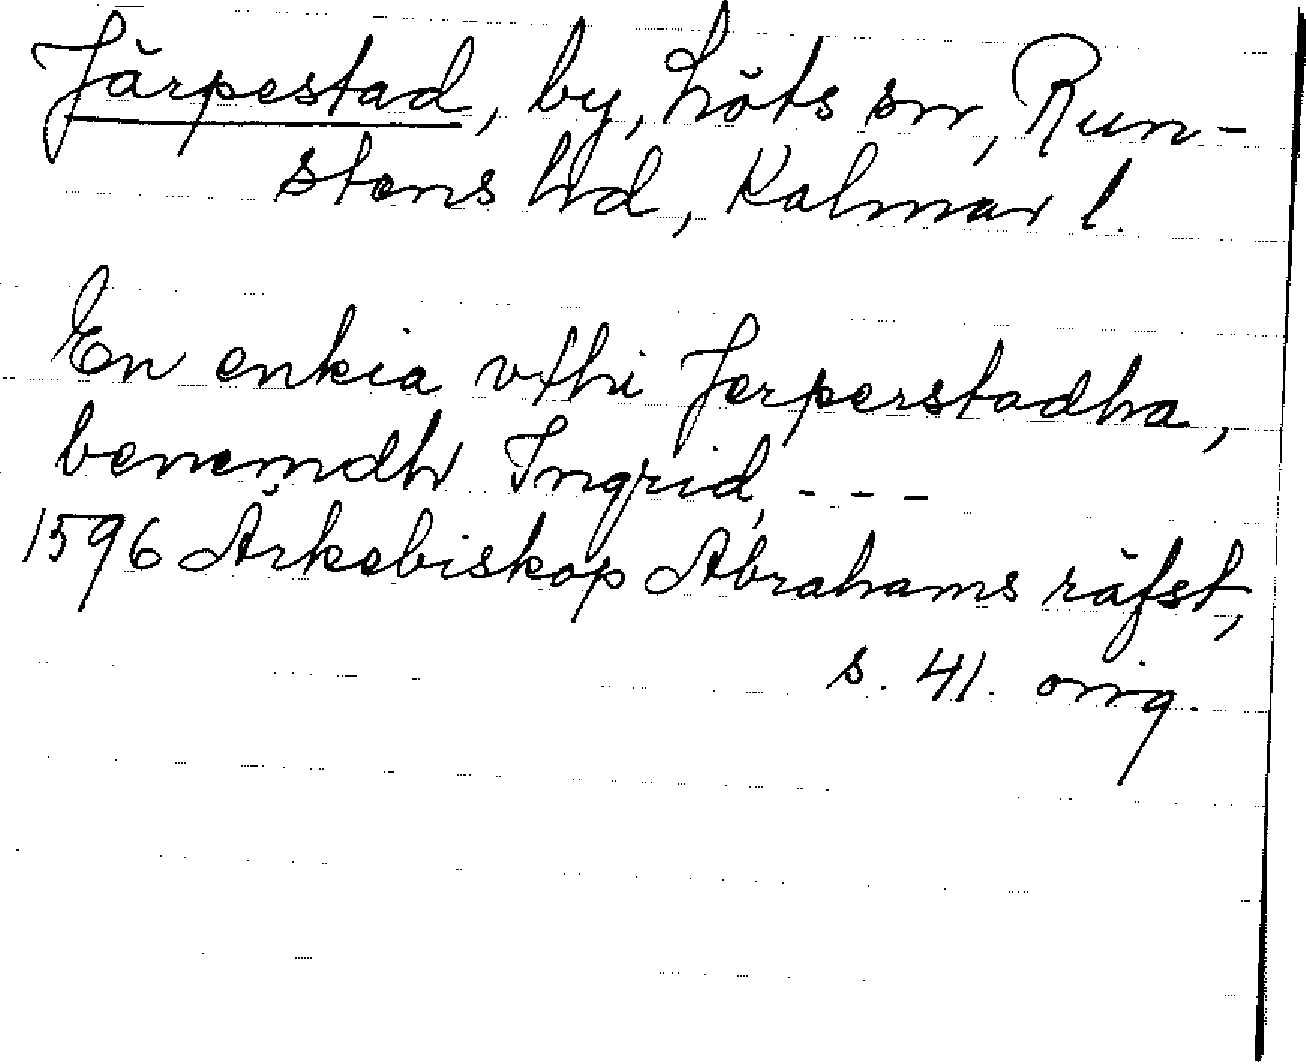 Järpestad, by, Löts sn, Run-
stens hd, Kalmar l.
En enkia vthi Jerperstadha,
benemdh Ingrid, - - -
1596 Ärkebiskop Abrahams räfst,
s. 41. orig.